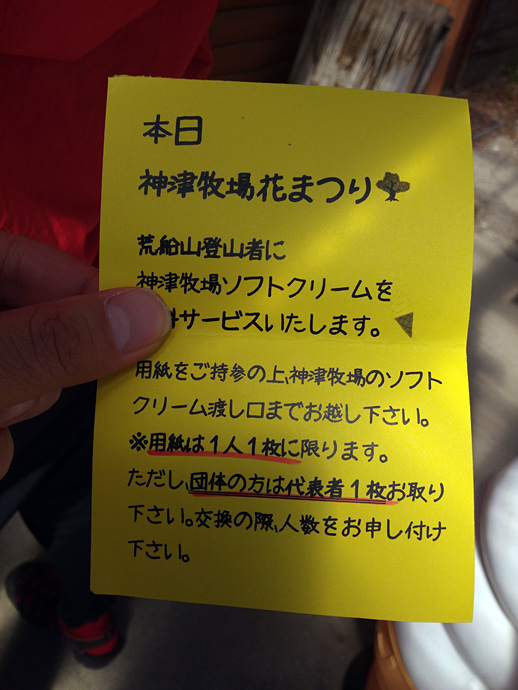 本日
神津牧場花まつり
荒船山登山者に
神津牧場ソフトクリームを
サービスいたします。
用紙をご持参の上、神津牧場のソフト
クリーム渡し口までお越し下さい。
※用紙は1人1枚に限ります。
ただし、団体の方は代表者1枚お取り
下さい。交換の際、人数をお申し付け
下さい。